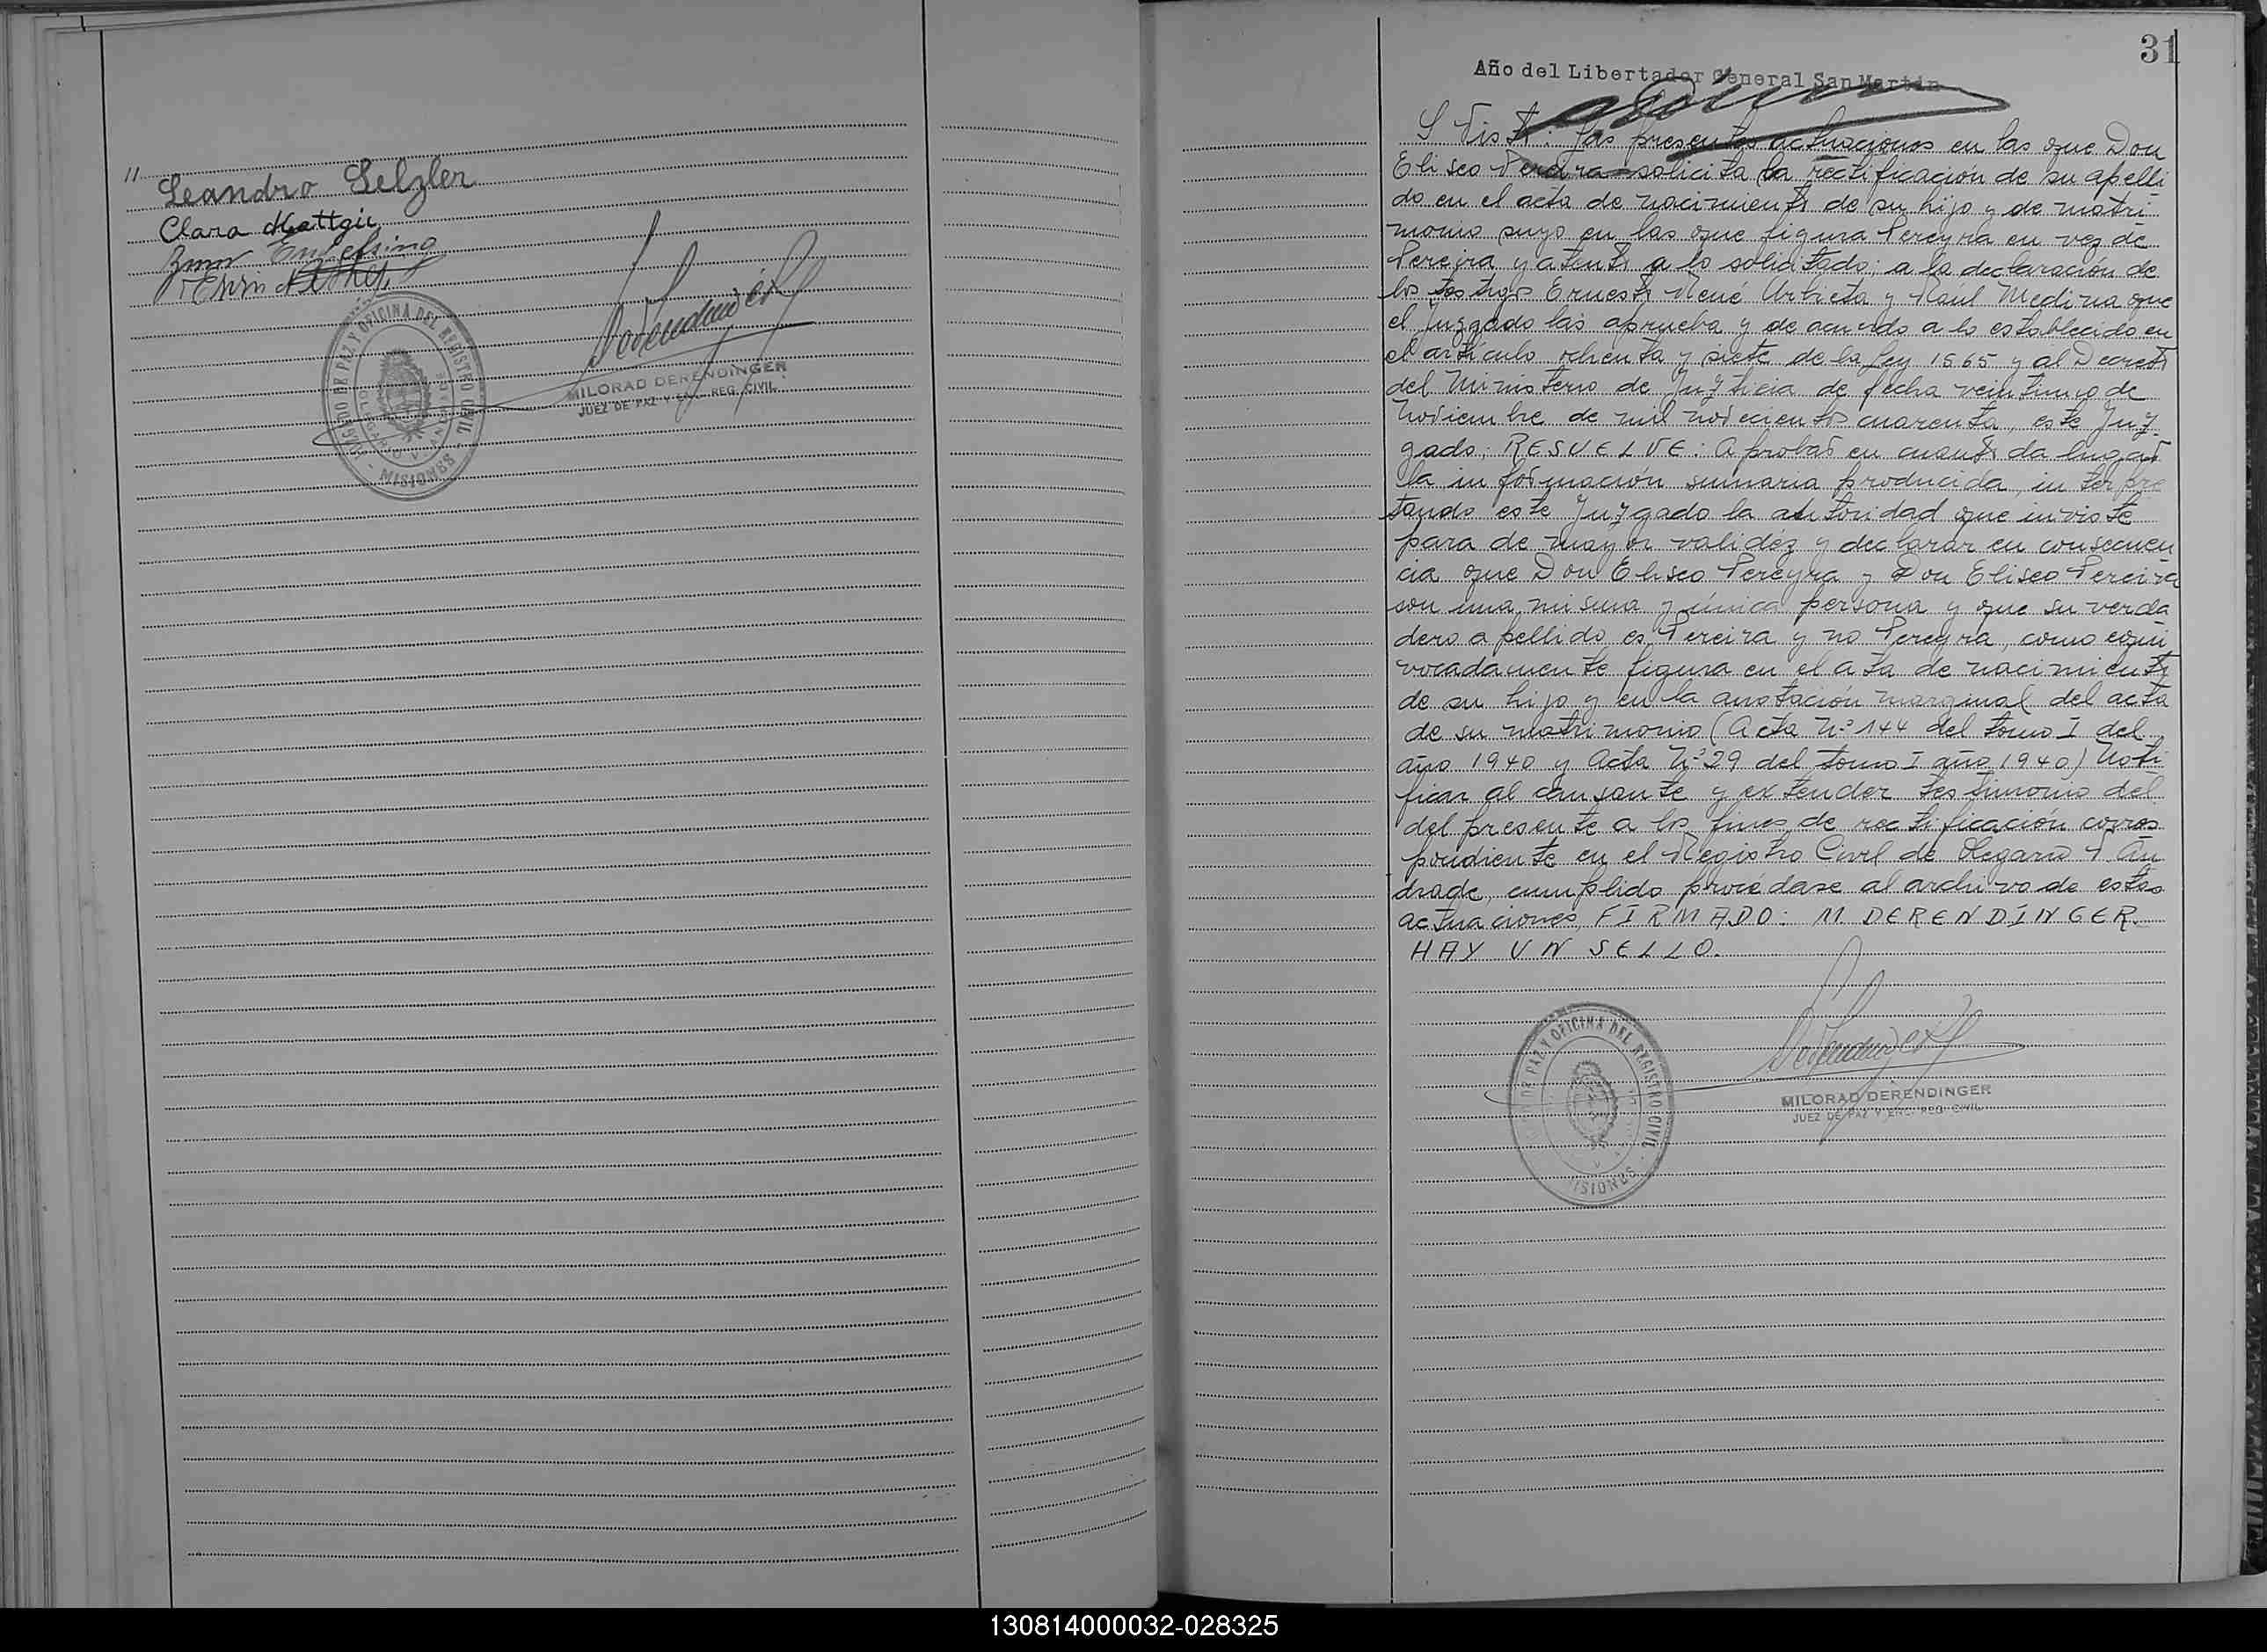 11
Leandro Selzler
Clara Mattgic
JUZGADO DE PAZ Y OFICINA DEL REGISTRO CIVIL
- MISIONES -
MILORAD DERENDINGER
JUEZ DE PAZ Y ENC. REG. CIVIL
31
Año del Libertador General San Martín
Y Visto: Las presentes actuaciones en las que Don
Eliseo Pereira solicita la rectificación de su apelli
do en el acta de nacimiento de su hijo y de matri
monio suyo en las que figura Pereyra en vez de
Pereira y atento a lo solicitado; a la declaración de
los testigos Ernesto René Urbieta y Raúl Medina que
el Juzgado las aprueba y de acuerdo a lo establecido en
el artículo ochenta y siete de la Ley 1565 y al Decreto
del Ministerio de Justicia de fecha veintiuno de
Noviembre de mil novecientos cuarenta, este Juz
gado; RESUELVE: Aprobar en cuanto da lugar
la información sumaria producida, interpre
tando este Juzgado la autoridad que inviste
para de mayor validéz y declarar en consecuen
cia que Don Eliseo Pereyra y Don Eliseo Pereira
son una misma y única persona y que su verda
dero apellido es Pereira y no Pereyra, como equi
vocadamente figura en el ata de nacimiento
de su hijo y en la anotación marginal del acta
de su matrimonio (Acta Nº 144 del tomo I del
año 1940 y Acta Nº 29 del tomo I año 1940) Noti
ficar al causante y extender testimonio del
del presente a los fines de rectificación corres
pondiente en el Registro Civil de Olegario V. An
drade, cumplido procédase al archivo de estas
actuaciones, FIRMADO: M. DERENDINGER.
HAY UN SELLO.
DE PAZ Y OFICINA DEL REGISTRO CIVIL
MISIONES
MILORAD DERENDINGER
JUEZ DE PAZ Y ENC. REG. CIVIL
130814000032-028325